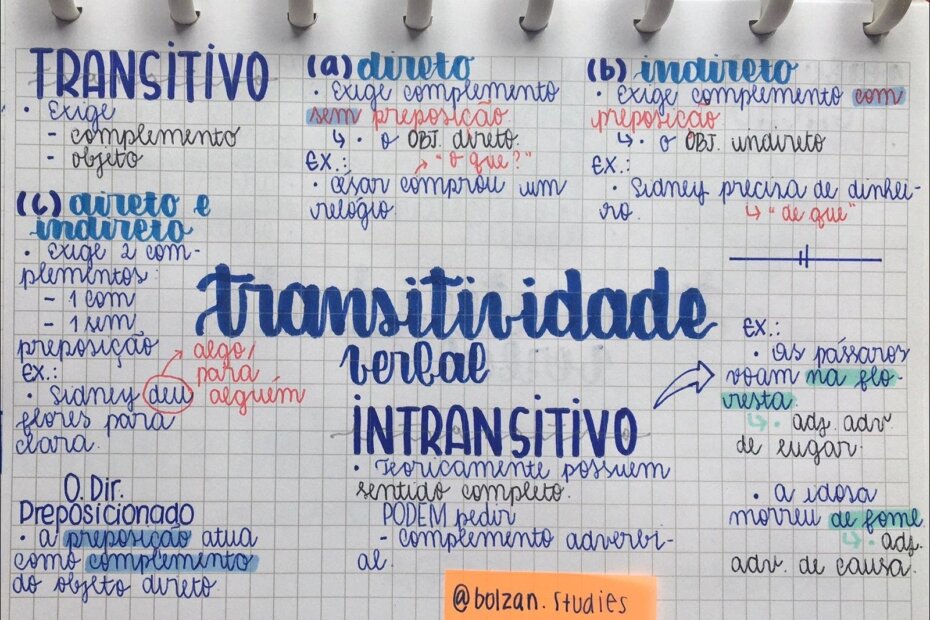 TRANSITIVO
• Exige
- complemento
- objeto
(a) direto
• exige complemento
sem preposição
↳ • o OBJ. direto.
EX.: → "o que?"
• César comprou um
relógio
(b) indireto
• exige complemento com
preposição
↳ • o OBJ. indireto
EX.:
• Sidney precisa de dinhei-
ro. ↳ "de que"
(c) direto e
indireto
• exige 2 com-
plementos:
- 1 com
- 1 sem
preposição
EX.:
• Sidney deu
flores para
clara.
algo/
para
alguém
transitividade
verbal
O. Dir.
Preposicionado
• a preposição atua
como complemento
do objeto direto
INTRANSITIVO
• Teoricamente possuem
sentido completo.
PODEM pedir
- complemento adverbi-
al.
EX.:
• Os pássaros
voam na flo-
resta.
↳ • adj. adv.
de lugar.
• a idosa
morreu de fome.
↳ • adj.
adv. de causa.
@bolzan.studies